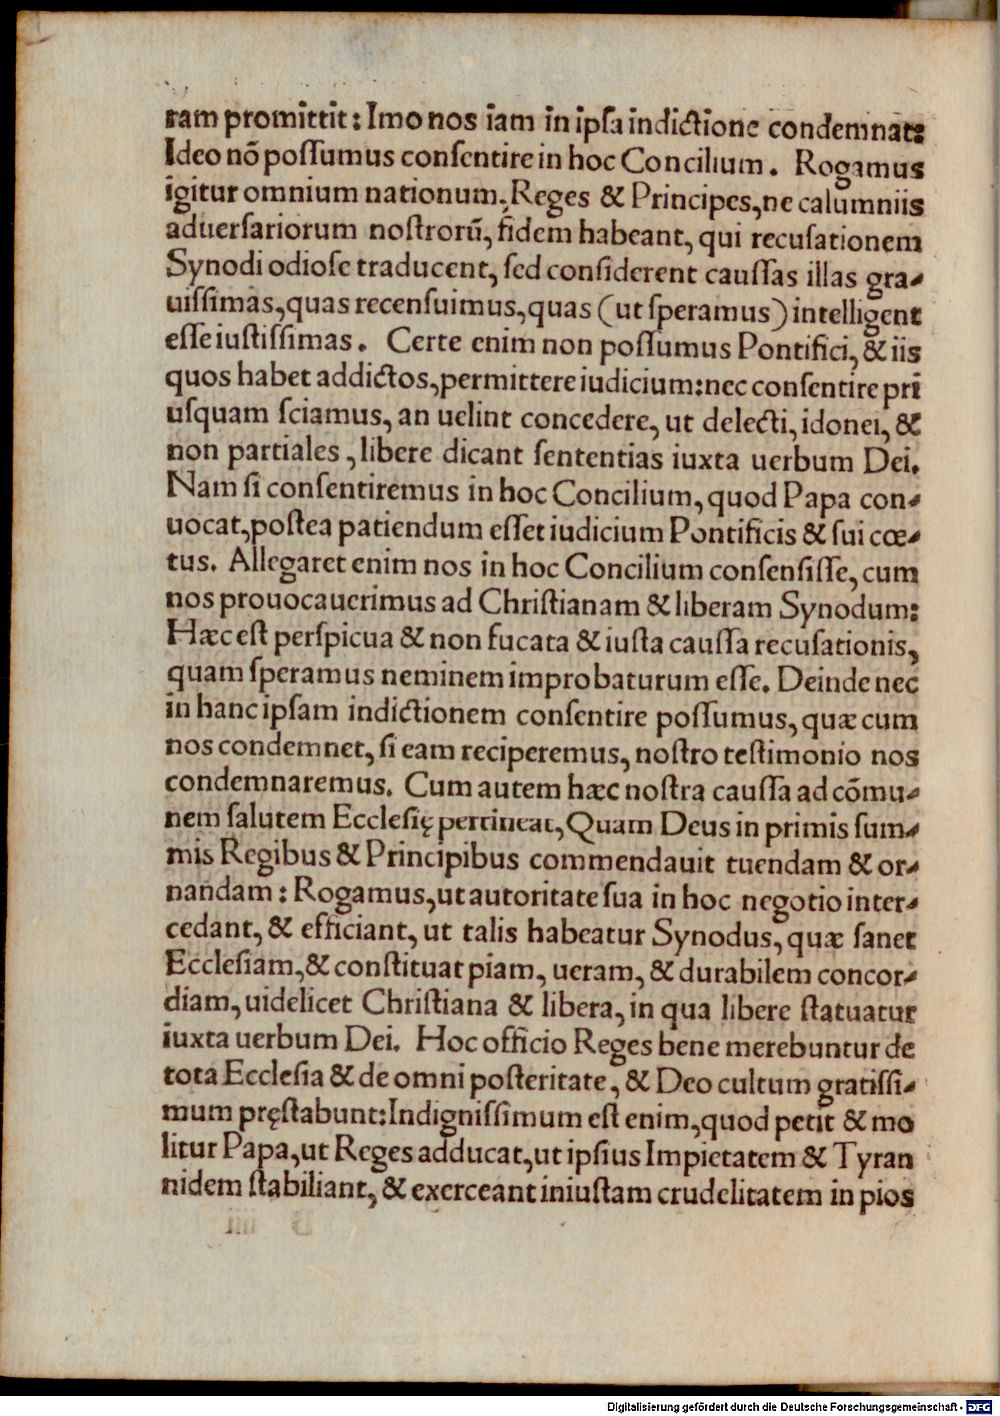 ram promittit: Imo nos iam in ipſa indictione condemnat:
Ideo nõ poſſumus conſentire in hoc Concilium. Rogamus
igitur omnium nationum, Reges & Principes, ne calumniis
aduerſariorum noſtrorũ, fidem habeant, qui recuſationem
Synodi odioſe traducent, ſed conſiderent cauſſas illas gra-
uiſſimas, quas recenſuimus, quas (ut ſperamus) intelligent
eſſe iuſtiſſimas. Certe enim non poſſumus Pontifici, & iis
quos habet addictos, permittere iudicium: nec conſentire pri
uſquam ſciamus, an uelint concedere, ut delecti, idonei, &
non partiales, libere dicant ſententias iuxta uerbum Dei.
Nam ſi conſentiremus in hoc Concilium, quod Papa con-
uocat, poſtea patiendum eſſet iudicium Pontificis & ſui cœ-
tus. Allegaret enim nos in hoc Concilium conſenſiſſe, cum
nos prouocauerimus ad Chriſtianam & liberam Synodum:
Hæc eſt perſpicua & non fucata & iuſta cauſſa recuſationis,
quam ſperamus neminem improbaturum eſſe. Deinde nec
in hanc ipſam indictionem conſentire poſſumus, quæ cum
nos condemnet, ſi eam reciperemus, noſtro teſtimonio nos
condemnaremus. Cum autem hæc noſtra cauſſa ad cõmu-
nem ſalutem Eccleſię pertineat, Quam Deus in primis ſum-
mis Regibus & Principibus commendauit tuendam & or-
nandam: Rogamus, ut autoritate ſua in hoc negotio inter-
cedant, & efficiant, ut talis habeatur Synodus, quæ ſanet
Eccleſiam, & conſtituat piam, ueram, & durabilem concor-
diam, uidelicet Chriſtiana & libera, in qua libere ſtatuatur
iuxta uerbum Dei. Hoc officio Reges bene merebuntur de
tota Eccleſia & de omni poſteritate, & Deo cultum gratiſſi-
mum pręſtabunt: Indigniſſimum eſt enim, quod petit & mo
litur Papa, ut Reges adducat, ut ipſius Impietatem & Tyran
nidem ſtabiliant, & exerceant iniuſtam crudelitatem in pios
Digitalisierung gefördert durch die Deutsche Forschungsgemeinschaft - DFG